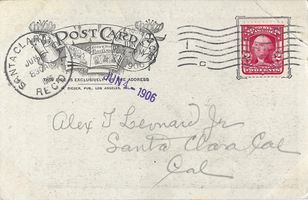 POST CARD
SANTA CLARA
REC'D
THIS SIDE IS EXCLUSIVELY FOR THE ADDRESS
M. RIEDER, PUB. LOS ANGELES,
JUN 1906
Alex T Leonard Jr
Santa Clara Cal
Cal